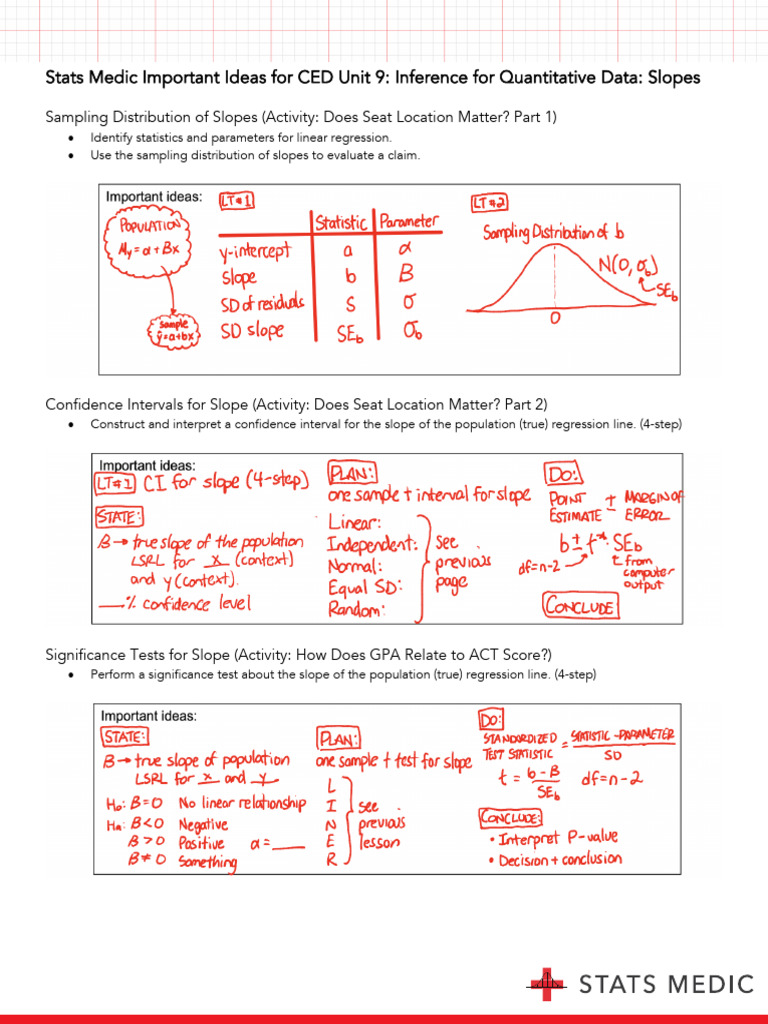 Stats Medic Important Ideas for CED Unit 9: Inference for Quantitative Data: Slopes
Sampling Distribution of Slopes (Activity: Does Seat Location Matter? Part 1)
• Identify statistics and parameters for linear regression.
• Use the sampling distribution of slopes to evaluate a claim.
Important ideas:
LT#1
POPULATION
My = α + Bx
Sample
ŷ=a+bx
Statistic Parameter
y-intercept a α
Slope b B
SD of residuals S σ
SD slope SEb σb
LT#2
Sampling Distribution of b
N(0, σb)
SEb
0
Confidence Intervals for Slope (Activity: Does Seat Location Matter? Part 2)
• Construct and interpret a confidence interval for the slope of the population (true) regression line. (4-step)
Important ideas:
LT#1 CI for slope (4-step)
STATE:
B → true slope of the population
LSRL for x (context)
and y (context).
___% confidence level
PLAN:
one sample t interval for slope
Linear:
Independent:
Normal:
Equal SD:
Random:
see
previous
page
DO:
POINT ESTIMATE ± MARGIN OF ERROR
b ± t*· SEb
df=n-2
t from
computer
output
CONCLUDE
Significance Tests for Slope (Activity: How Does GPA Relate to ACT Score?)
• Perform a significance test about the slope of the population (true) regression line. (4-step)
Important ideas:
STATE:
B → true slope of population
LSRL for x and y.
Ho: B=0 No linear relationship
Ha: B<0 Negative
B>0 Positive α=___
B≠0 Something
PLAN:
one sample t test for slope
L
I
N
E
R
see
previous
lesson
DO:
STANDARDIZED TEST STATISTIC = STATISTIC - PARAMETER / SD
t = b-B / SEb df=n-2
CONCLUDE:
• Interpret P-value
• Decision + conclusion
STATS MEDIC